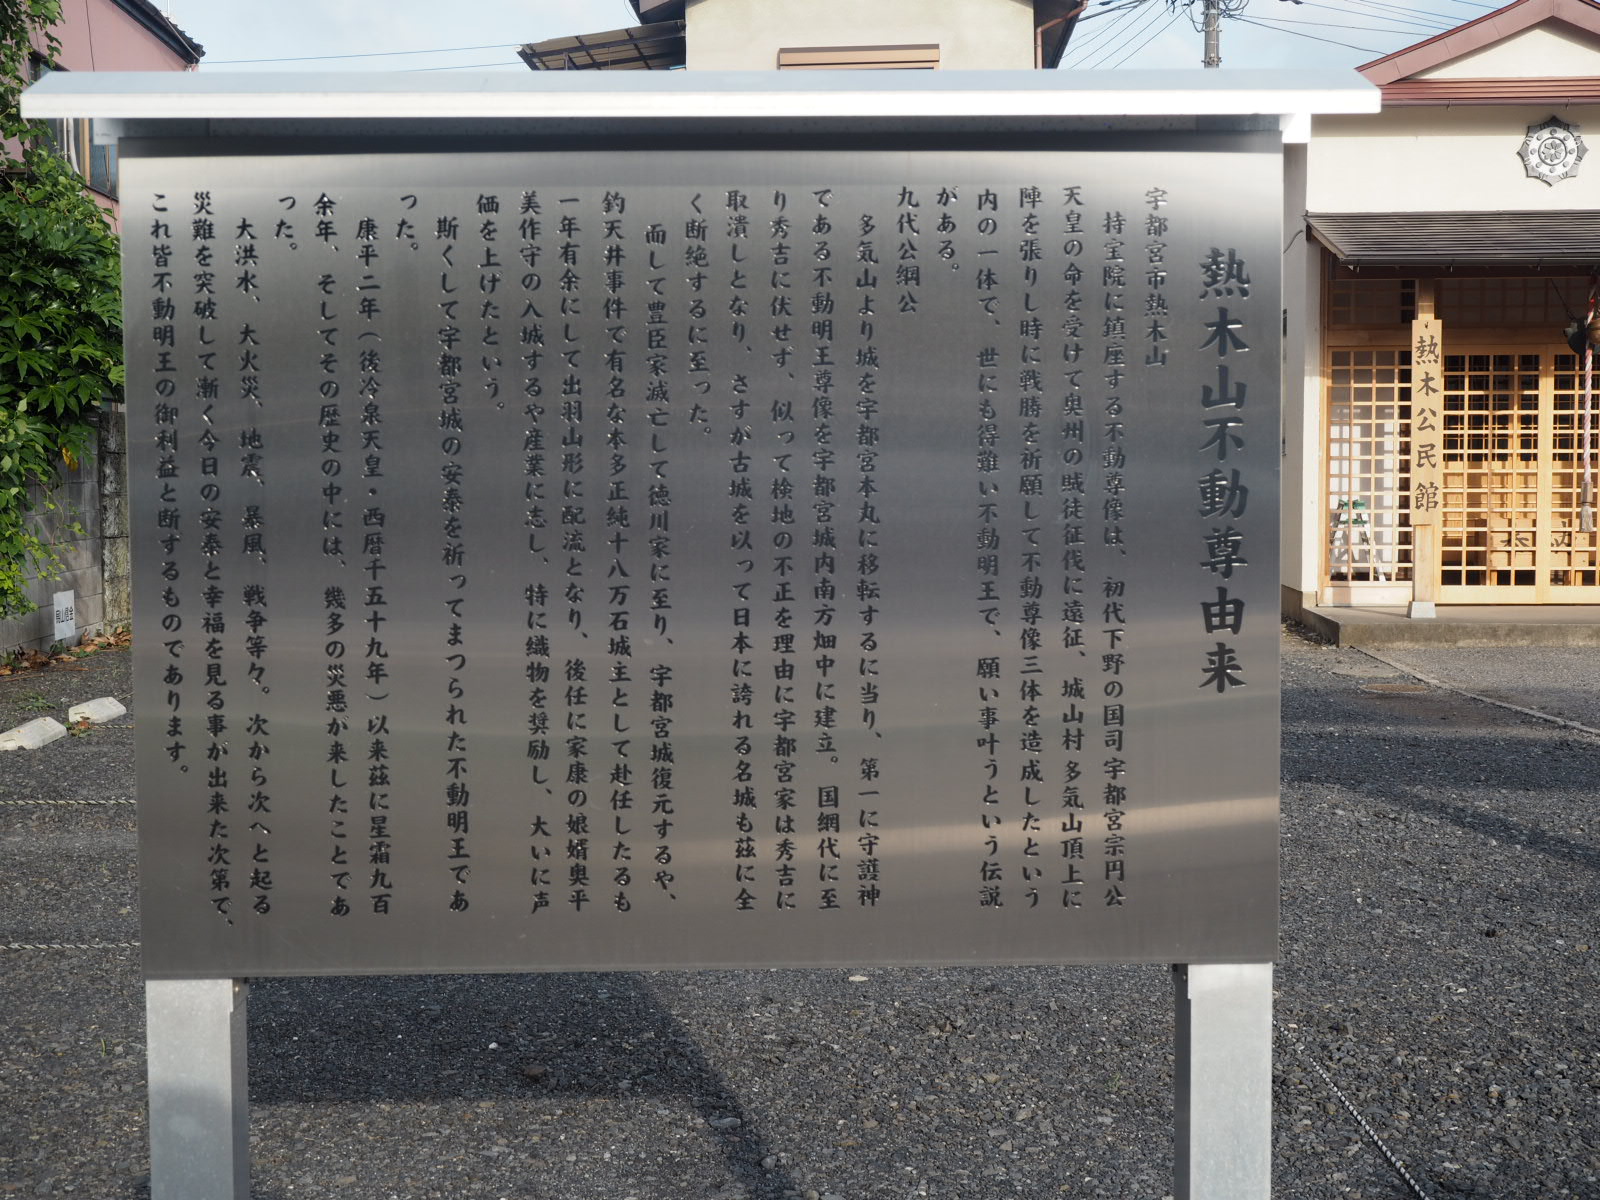 熱木山不動尊由来
宇都宮市熱木山
持宝院に鎮座する不動尊像は、初代下野の国司宇都宮宗円公
天皇の命を受けて奥州の賊徒征伐に遠征、城山村多気山頂上に
陣を張りし時に戦勝を祈願して不動尊像三体を造成したという
内の一体で、世にも得難い不動明王で、願い事叶うという伝説
がある。
九代公綱公
多気山より城を宇都宮本丸に移転するに当り、第一に守護神
である不動明王尊像を宇都宮城内南方畑中に建立。国綱代に至
り秀吉に伏せず、似って検地の不正を理由に宇都宮家は秀吉に
取潰しとなり、さすが古城を以って日本に誇れる名城も茲に全
く断絶するに至った。
而して豊臣家滅亡して徳川家に至り、宇都宮城復元するや、
釣天井事件で有名な本多正純十八万石城主として赴任したるも
一年有余にして出羽山形に配流となり、後任に家康の娘婿奥平
美作守の入城するや産業に志し、特に織物を奨励し、大いに声
価を上げたという。
斯くして宇都宮城の安泰を祈ってまつられた不動明王であ
った。
康平二年（後冷泉天皇・西暦千五十九年）以来茲に星霜九百
余年、そしてその歴史の中には、幾多の災悪が来したことであ
った。
大洪水、大火災、地震、暴風、戦争等々。次から次へと起る
災難を突破して漸く今日の安泰と幸福を見る事が出来た次第で、
これ皆不動明王の御利益と断するものであります。
熱木公民館
烏山信金